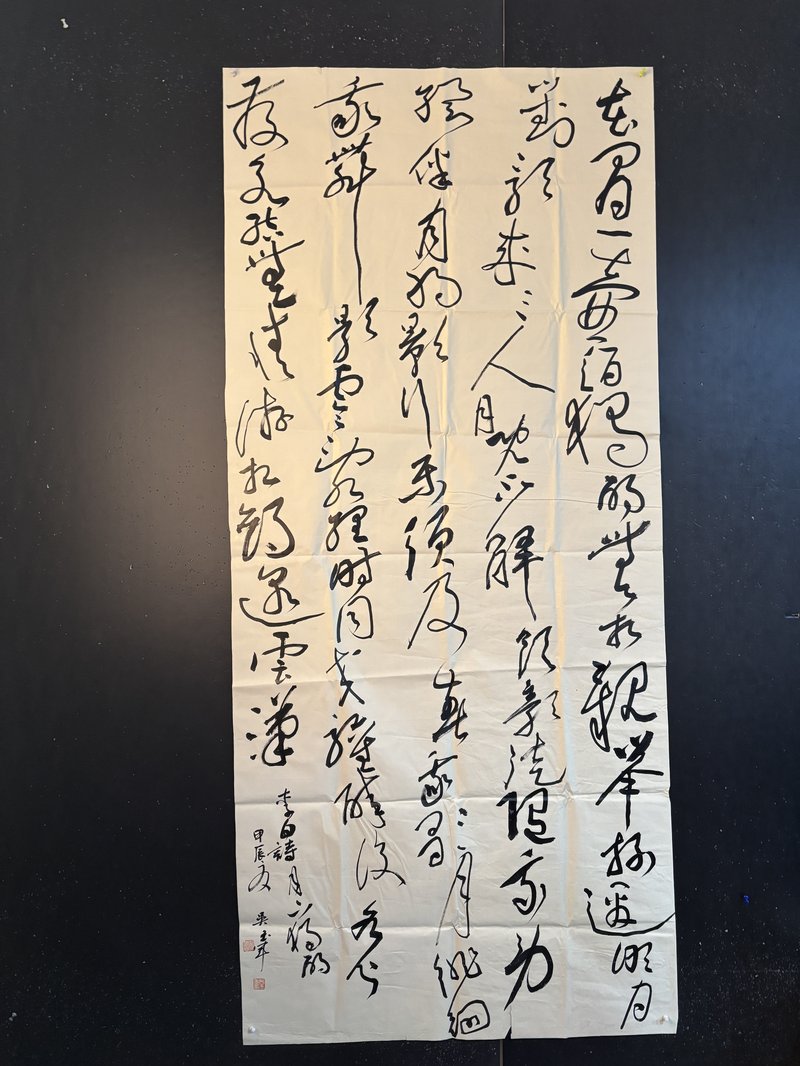 花間一壺酒獨酌無相親舉杯邀明月
對影成三人月既不解飲影徒隨我身
暫伴月將影行樂須及春我歌月徘徊
我舞影零亂醒時同交歡醉後各分
散永結無情遊相期邈雲漢
李白詩月下獨酌
甲辰